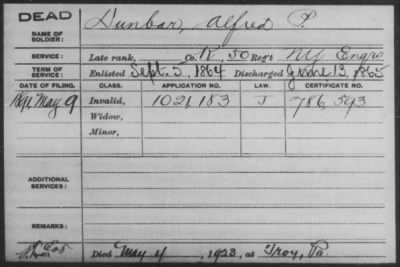 DEAD
NAME OF SOLDIER: Dunbar, Alfred P.
SERVICE: Late rank, Co. K, 50 Reg't NY Engrs
TERM OF SERVICE: Enlisted Sept. 5, 1864 Discharged June 13, 1865
DATE OF FILING. CLASS. APPLICATION NO. LAW. CERTIFICATE NO.
1891 May 9 Invalid, 1021,183 J 786,593
Widow,
Minor,
ADDITIONAL SERVICES:
REMARKS:
Died May 4, 1923, at Troy, Pa.